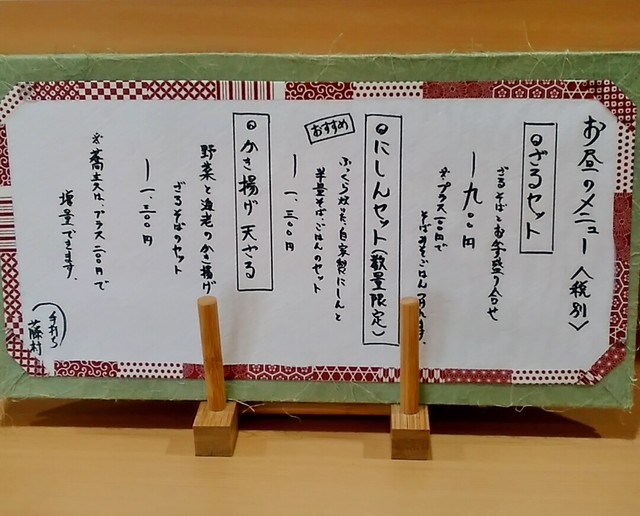 お昼のメニュー〈税別〉
◎ざるセット
ざるそばとお弁当盛り合せ
一九〇〇円
※プラス一〇〇円で
そばみそごはん
◎にしんセット(数量限定)
おすすめ
ふっくら炊いた自家製にしんと
半量そば、ごはんのセット
一、三〇〇円
◎かき揚げ天ざる
野菜と海老のかき揚げ
ざるそばのセット
一一、三〇〇円
※蕎麦は、プラス二〇〇円で
増量できます。
手打ち
藤村